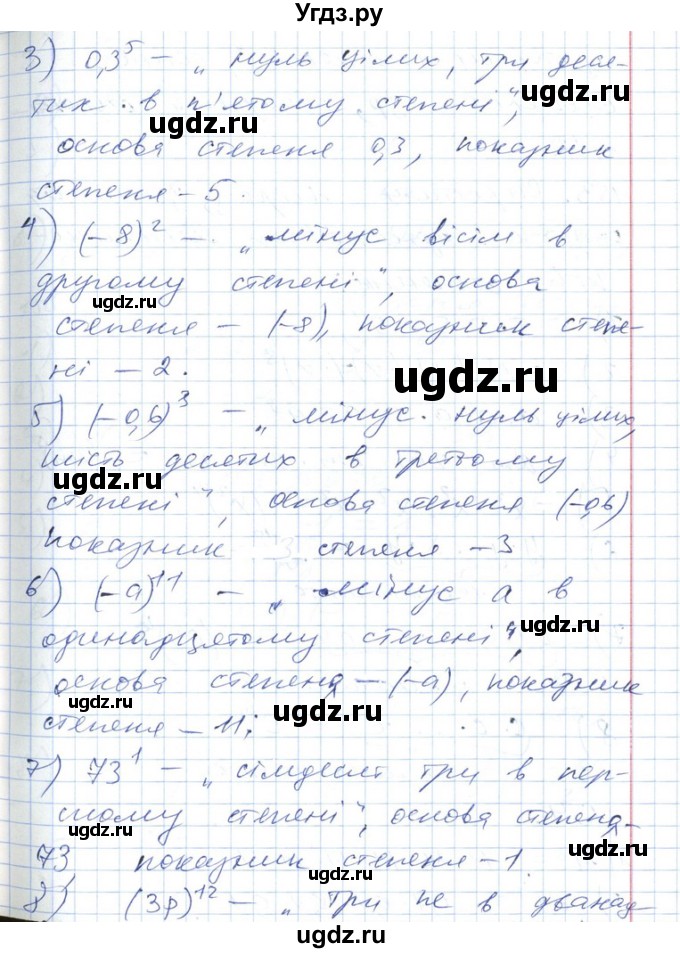 Угдз.ру
3) 0,3⁵ – „нуль цілих, три деся-
тих в п'ятому степені",
основа степеня 0,3, показник
степеня – 5.
4) (–8)² – „мінус вісім в
другому степені", основа
степеня – (–8), показник степе-
ні – 2.
5) (–0,6)³ – „мінус нуль цілих,
шість десятих в третьому
степені", основа степеня (–0,6)
показник степеня – 3
6) (–a)¹¹ – „мінус a в
одинадцятому степені",
основа степеня – (–a), показник
степеня – 11;
7) 73¹ – „сімдесят три в пер-
шому степені", основа степеня –
73, показник степеня – 1.
8) (3p)¹² – „три пе в дванад
ugdz.ru
ugdz.ru
ugdz.ru
ugdz.ru
ugdz.ru
ugdz.ru
ugdz.ru
ugdz.ru
ugdz.ru
ugdz.ru
ugdz.ru
ugdz.ru
ugdz.ru
ugdz.ru